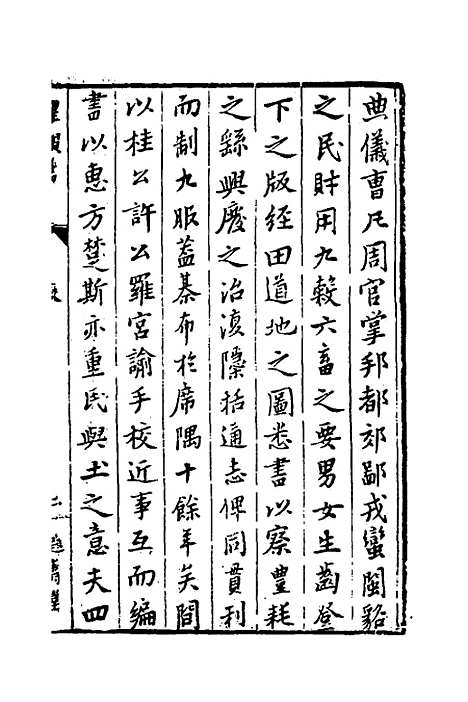 典儀曹凡周官掌邦都郊鄙戎蠻閩貉
之民財用九穀六畜之要男女生齒登
下之版經田道地之圖悉書以察豊耗
之繇興慶之治湏隱括通志俾同貫利
而制九服蓋棊布扵席隅十餘年矣間
以桂公許公羅宮諭手校近事互而編
書以惠方楚斯亦重民與土之意夫四